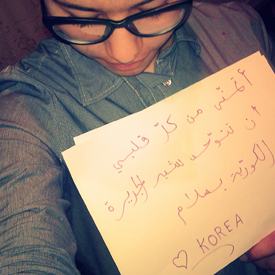 أتمنى من كل قلبي
أن تتوحد الشبه الجزيرة
الكورية بسلام
♡ KOREA